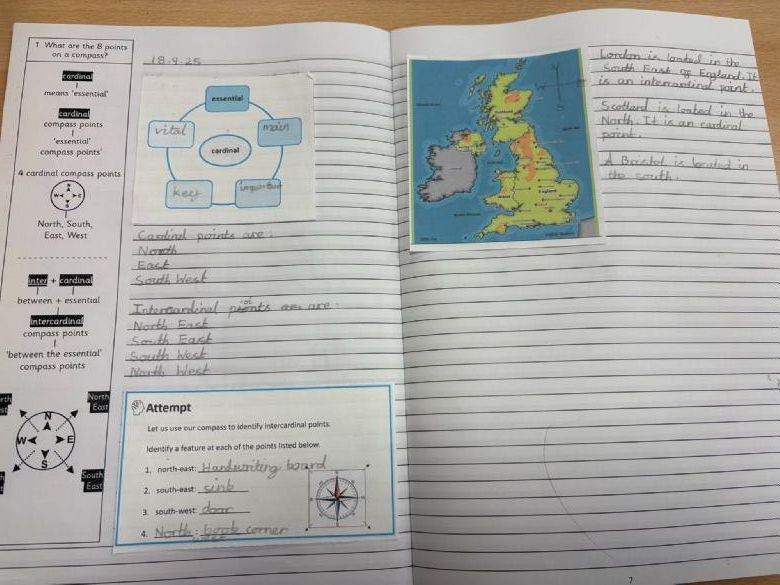 1 What are the 8 points
on a compass?
cardinal
means 'essential'
cardinal
compass points
'essential'
compass points'
4 cardinal compass points
N
W E
S
North, South,
East, West
inter + cardinal
between + essential
intercardinal
compass points
'between the essential'
compass points
North
East
N
W E
S
South
East
18.9.25
essential
vital
main
cardinal
key
important
Cardinal points are:
North
East
South West
Intercardinal points are:
North East
South East
South West
North West
Attempt
Let us use our compass to identify intercardinal points.
Identify a feature at each of the points listed below.
1. north-east: Handwriting board
2. south-east: sink
3. south-west: door
4. North west: book corner
London is located in the
South East of England. It
is an intercardinal point.
Scotland is located in the
North. It is an cardinal
point.
A Bristol is located in
the south.
W
S
7